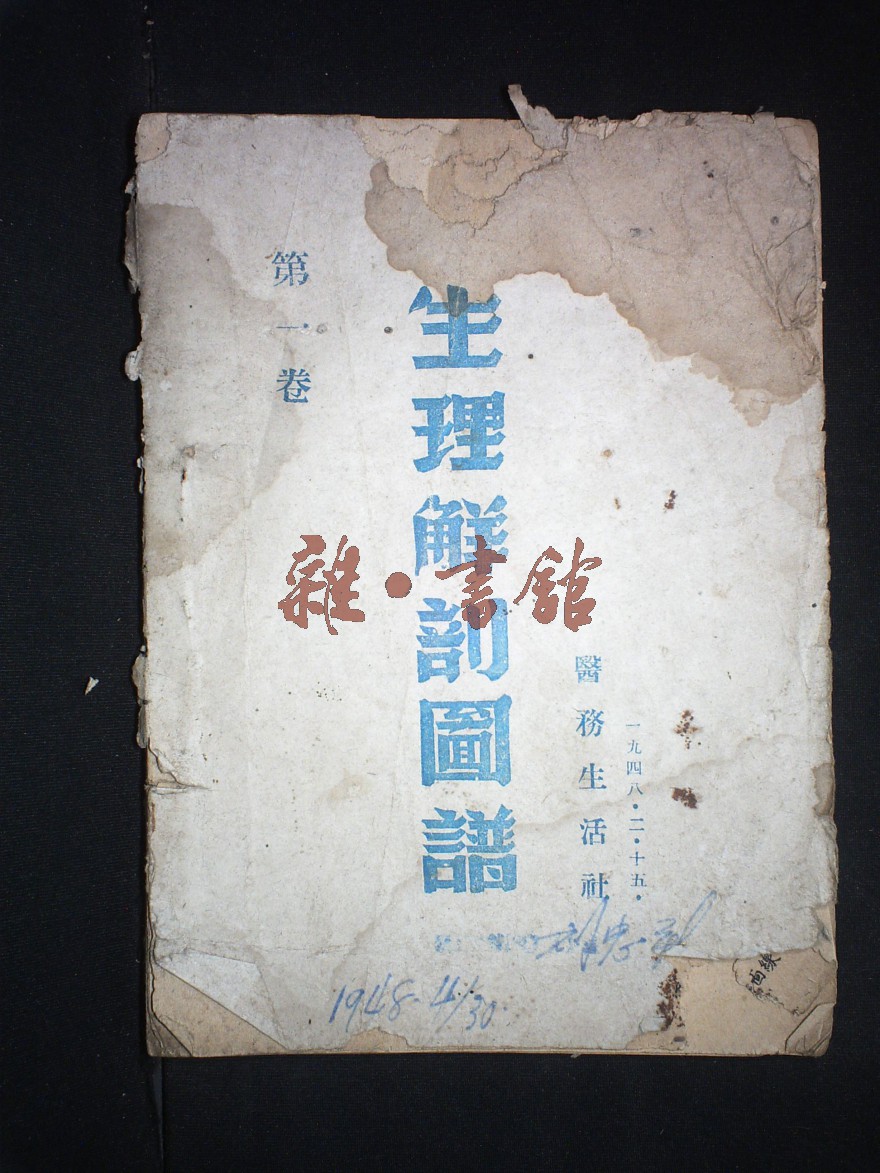 一九四八·二·十五·
醫務生活社
生理解剖圖譜
第一卷
雜·書館
1948.4/30